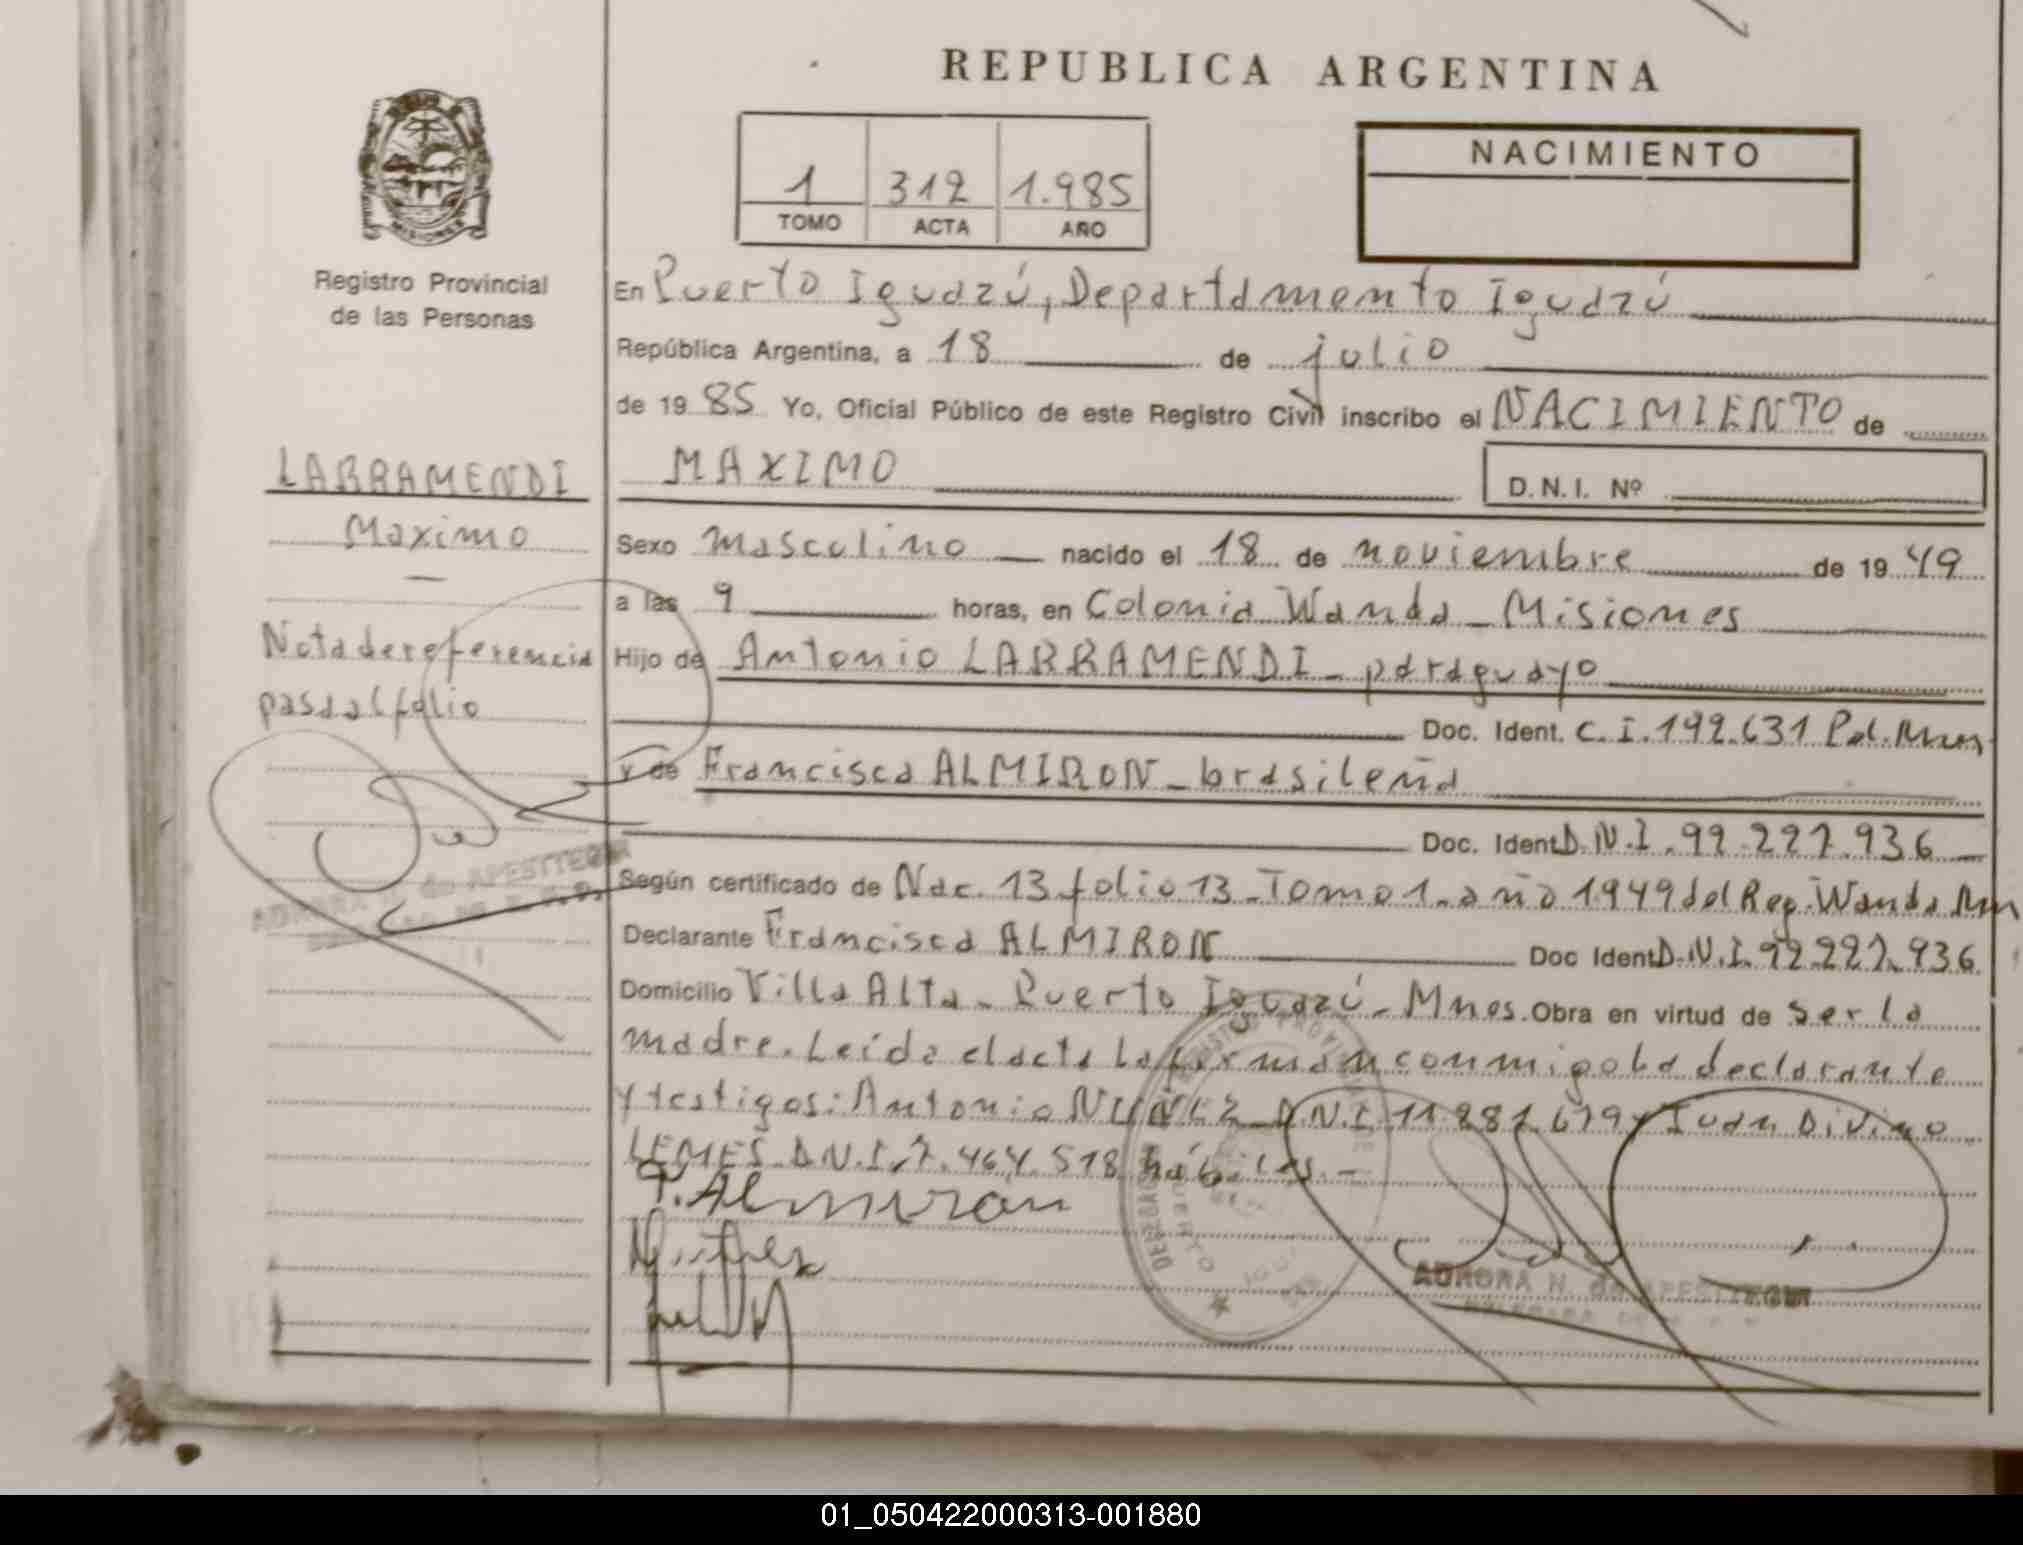 REPUBLICA ARGENTINA
1 312 1.985
TOMO ACTA AÑO
NACIMIENTO
MISIONES
Registro Provincial
de las Personas
LARRAMENDI
Maximo
Nota de referencia
pasa al folio
En Puerto Iguazú, Departamento Iguazú
República Argentina, a 18 de julio
de 19 85 Yo, Oficial Público de este Registro Civil inscribo el NACIMIENTO de
MAXIMO
D.N.I. Nº
Sexo masculino nacido el 18 de noviembre de 19 49
a las 9 horas, en Colonia Wanda - Misiones
Hijo de Antonio LARRAMENDI - paraguayo
Doc. Ident. C.I. 192.631 Pol. Mnes
y de Francisca ALMIRON - brasileña
Doc. Ident. D.N.I. 92.227.936
Según certificado de Nac. 13 folio 13 - Tomo 1 - año 1949 del Reg. Wanda Mn
Declarante Francisca ALMIRON Doc Ident D.N.I. 92.227.936
Domicilio Villa Alta - Puerto Iguazú - Mnes. Obra en virtud de ser la
madre. Leída el acta la firman conmigo la declarante
y testigos: Antonio NUÑEZ D.N.I. 11.287.679 y Juan Divino
LEMES D.N.I. 7.464.518 hábiles. -
F. Almiron
Nuñez
AURORA N. de APESTTEGUI
01_050422000313-001880